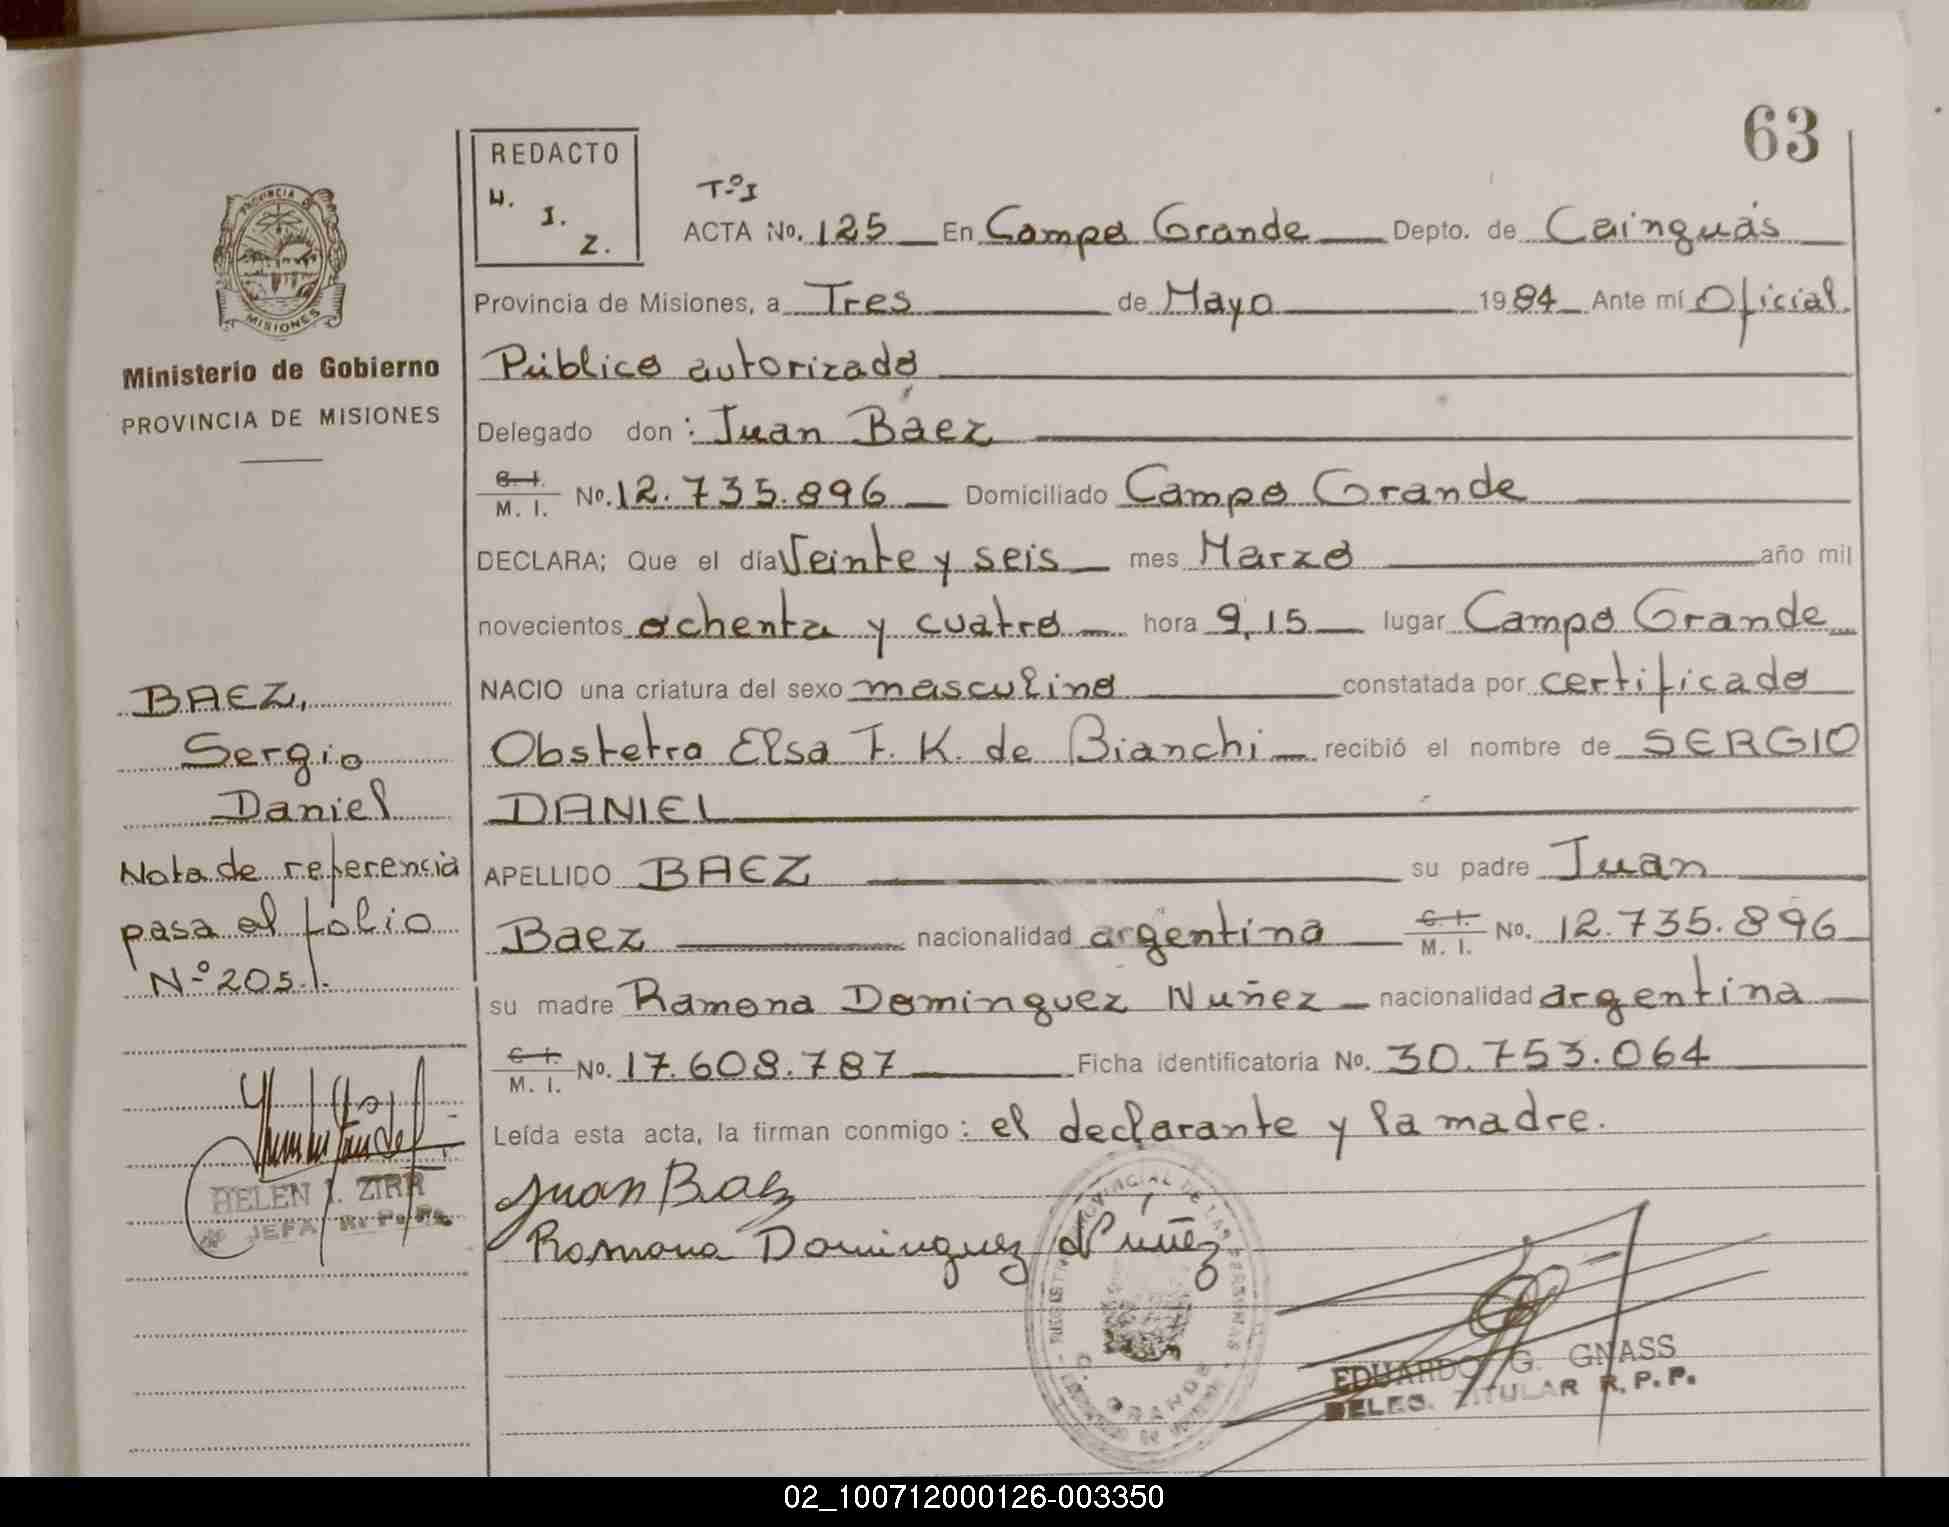 63
REDACTO
H. I. Z.
PROVINCIA DE
MISIONES
Ministerio de Gobierno
PROVINCIA DE MISIONES
T.º I
ACTA No. 125 En Campo Grande Depto. de Cainguás
Provincia de Misiones, a Tres de Mayo 1984 Ante mí Oficial
Público autorizado
Delegado don: Juan Báez
C. I. M. I. No. 12.735.896 Domiciliado Campo Grande
DECLARA; Que el día Veinte y seis mes Marzo año mil
novecientos ochenta y cuatro hora 9,15 lugar Campo Grande
NACIO una criatura del sexo masculino constatada por certificado
Obstetra Elsa F. K. de Bianchi recibió el nombre de SERGIO
DANIEL
APELLIDO BAEZ su padre Juan
Baez nacionalidad argentina C. I. M. I. No. 12.735.896
su madre Ramona Dominguez Nuñez nacionalidad argentina
C. I. M. I. No. 17.608.787 Ficha identificatoria No. 30.753.064
Leída esta acta, la firman conmigo: el declarante y la madre.
Juan Baez
Ramona Dominguez Núñez
BAEZ,
Sergio
Daniel
Nota de referencia
pasa al folio
N.º 205.
HELEN I. ZIRR
JEFA R. P. P.
EDUARDO G. GNASS
DELEG. TITULAR R. P. P.
02_100712000126-003350